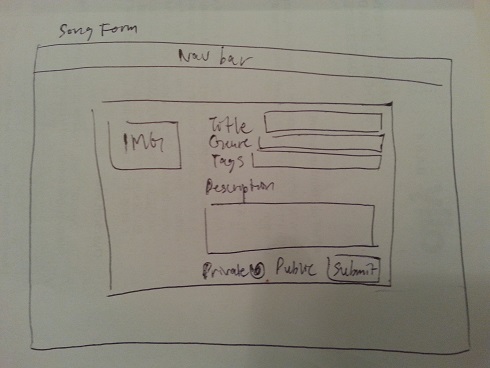 Song Form
Nav bar
IMG
Title
Genre
Tags
Description
Private Public Submit